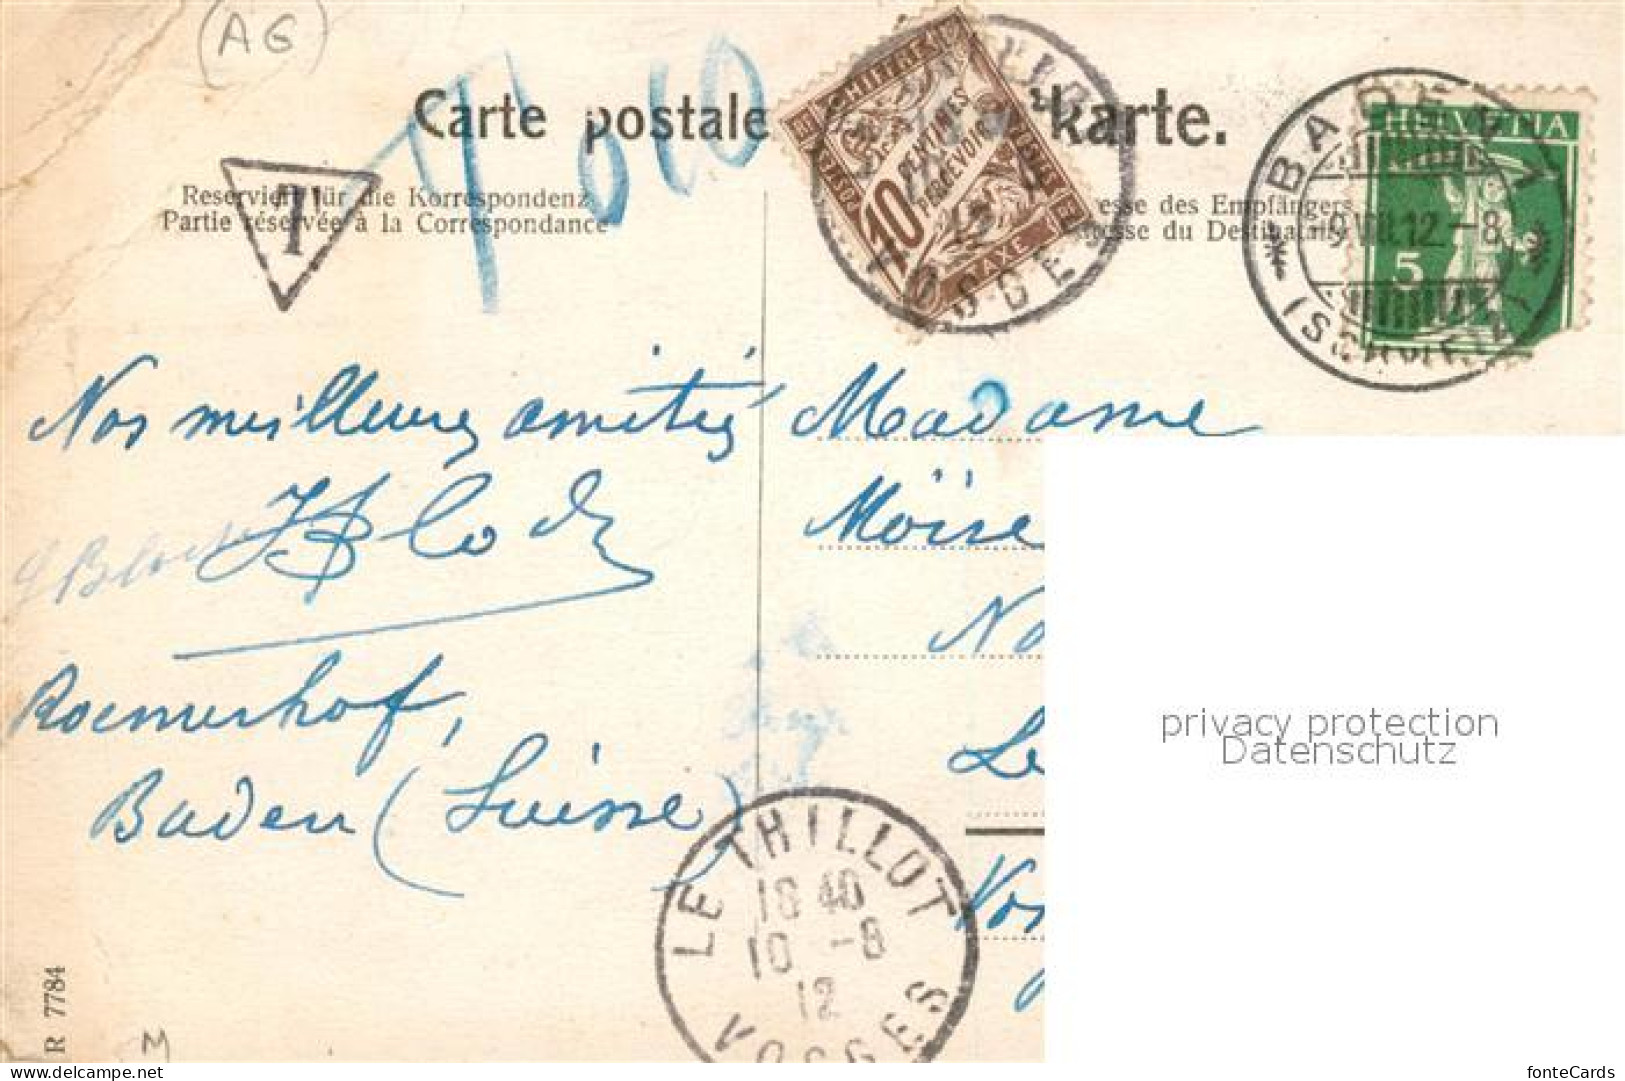 (AG)
T 010
Carte postale
karte.
Reserviert für die Korrespondenz
Partie réservée à la Correspondance
T
esse des Empfängers
esse du Destinataire
CHIFFRE
10 CENTIMES
À PERCEVOIR
POSTES
TAXE
VOSGES
HELVETIA
5
BADEN
9.VIII.12.-8
(SCHWEIZ)
Nos meilleures amitiés
JBloch
J Bloch
Roemerhof,
Baden (Suisse)
Madame
Moïse
No
Le
Vos
privacy protection
Datenschutz
LE THILLOT
18 40
10 -8
12
VOSGES
R 7784
M
fonteCards